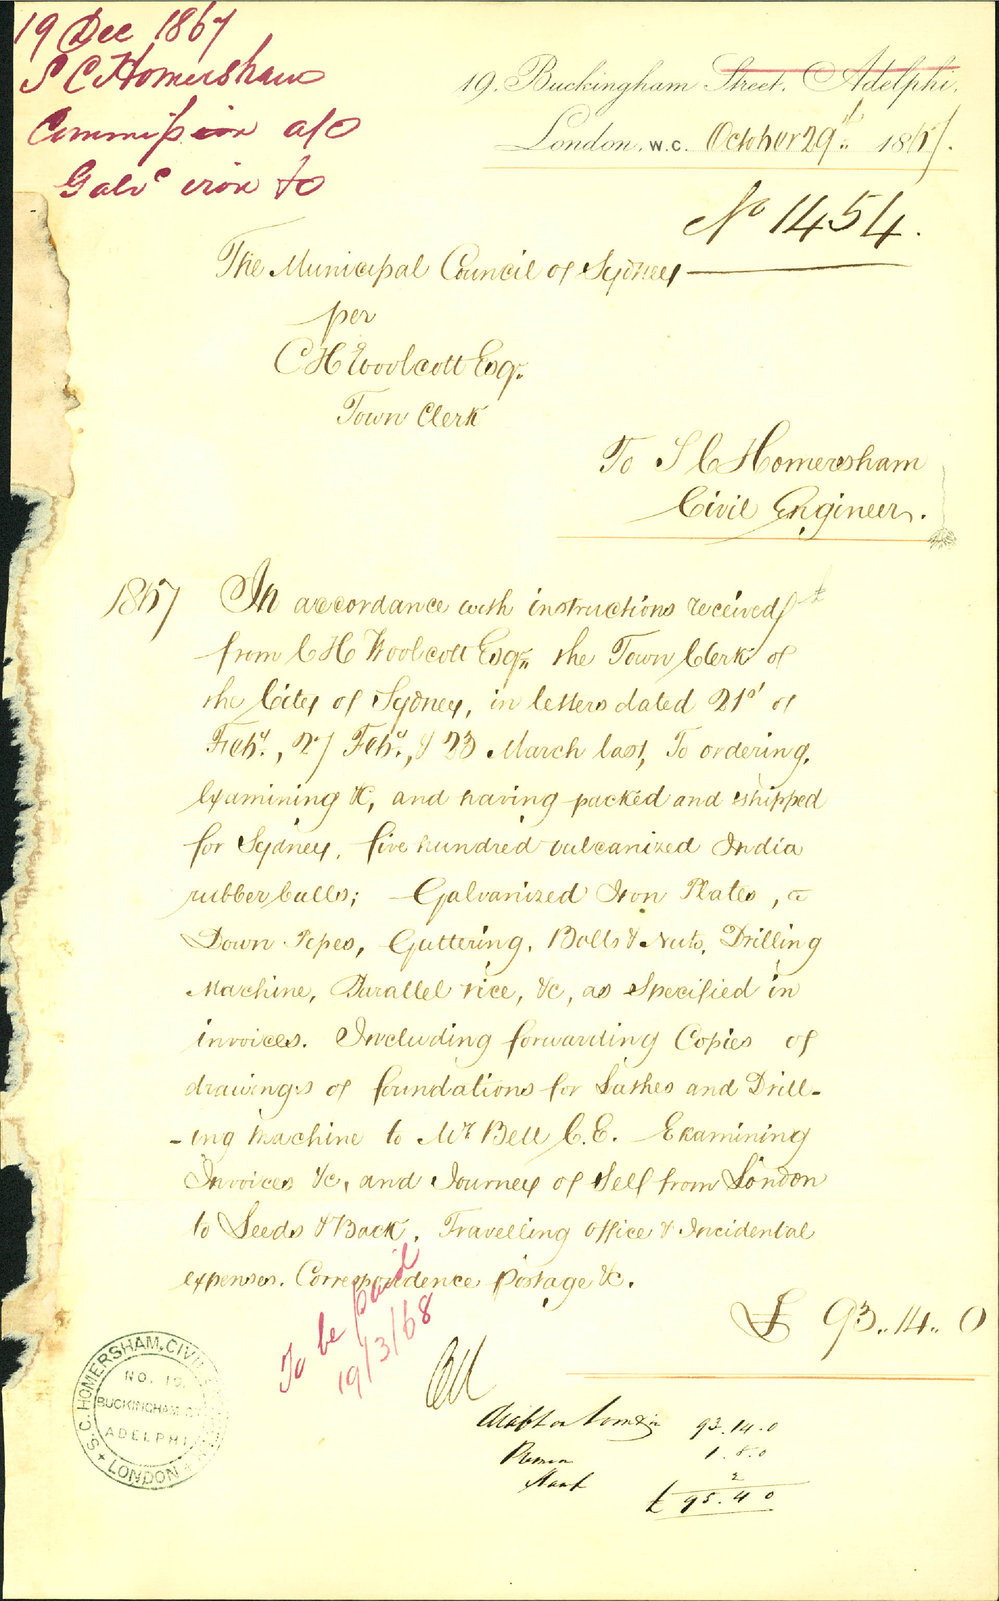 19 Dec 1867
S C Homersham
Commission a/c
Galvc iron &c
19. Buckingham Street. Adelphi.
London. W.C. October 29th 1867.
No 1454.
The Municipal Council of Sydney
per
C H Woolcott Esqr.
Town Clerk
To S C Homersham
Civil Engineer.
1867 In accordance with instructions received
from C H Woolcott Esqr. the Town Clerk of
the City of Sydney, in letters dated 21st of
Feby., 27 Feby., & 23 March last, To ordering,
Examining &c, and having packed and shipped
for Sydney, five hundred vulcanized India
rubber balls; Galvanized Iron Plates,
Down Pipes, Guttering, Bolts & Nuts, Drilling
Machine, Parallel vice, &c, as Specified in
invoices. Including forwarding Copies of
drawings of foundations for Lathes and Drill-
-ing Machine to Mr Bell C.E. Examining
Invoices &c, and Journey of Self from London
to Leeds & Back. Travelling office & Incidental
expenses. Correspondence Postage &c.
£ 93..14..0
To be paid
19/3/68
Draft on London 93.14.0
1.8.0
2
£ 95.4.0
S.C. HOMERSHAM. CIVIL
NO. 19.
BUCKINGHAM ST
ADELPHI
LONDON